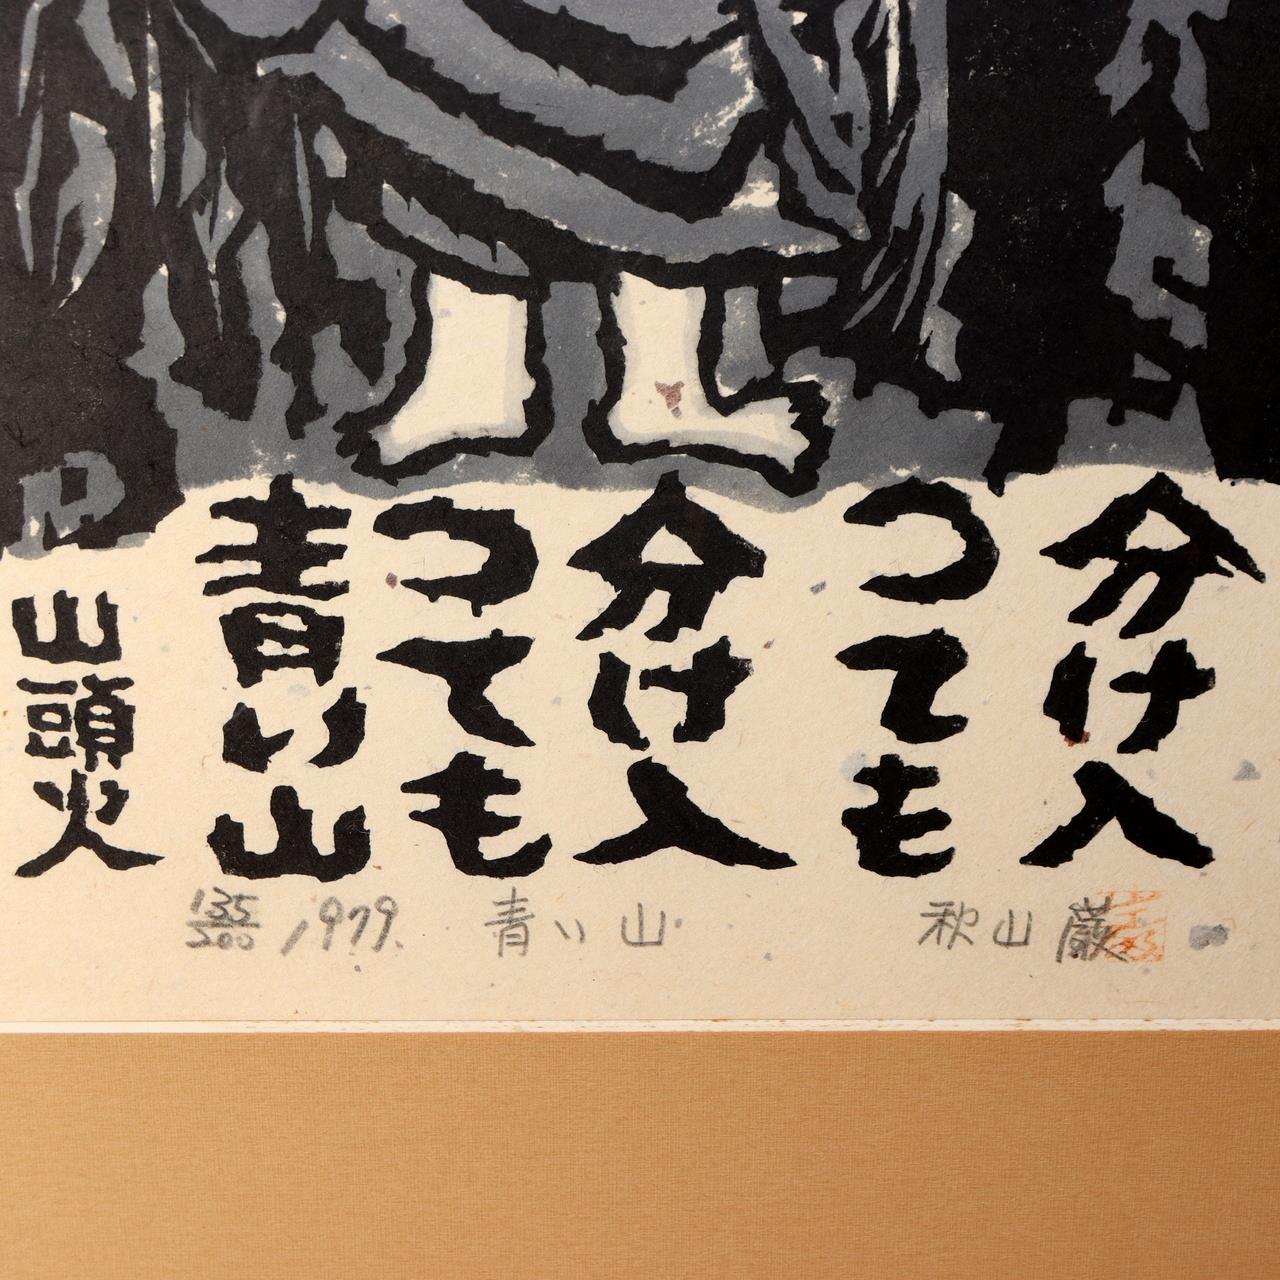 分け入
つても
分け入
つても
青い山
山頭火
135/200 1979. 青い山. 秋山巌